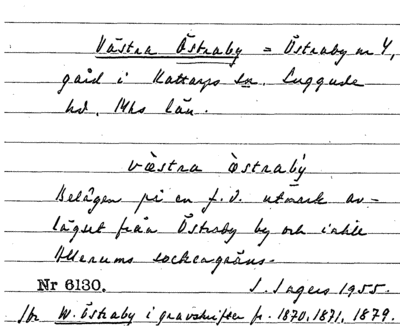 Västra Östraby = Östraby nr 4,
gård i Kattarps sn. Luggude
hd. Mhs län.
västra östraby
Belägen på en f.d. utmark av-
lägset från Östraby by och intill
Allerums sockengräns.
Nr 6130. J. Ingers 1955.
W. Östraby i gravskrifter fr. 1870, 1871, 1879.